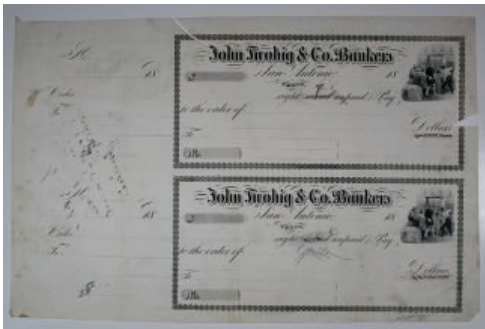 No
18
Order
To
John Twohig & Co. Bankers
$
San Antonio 18
TEXAS
sight unpaid) Pay
to the order of
Dollars
To
No.
No
18
Order
To
John Twohig & Co. Bankers
San Antonio 18
TEXAS
sight unpaid) Pay
to the order of
Dollars
To
No.